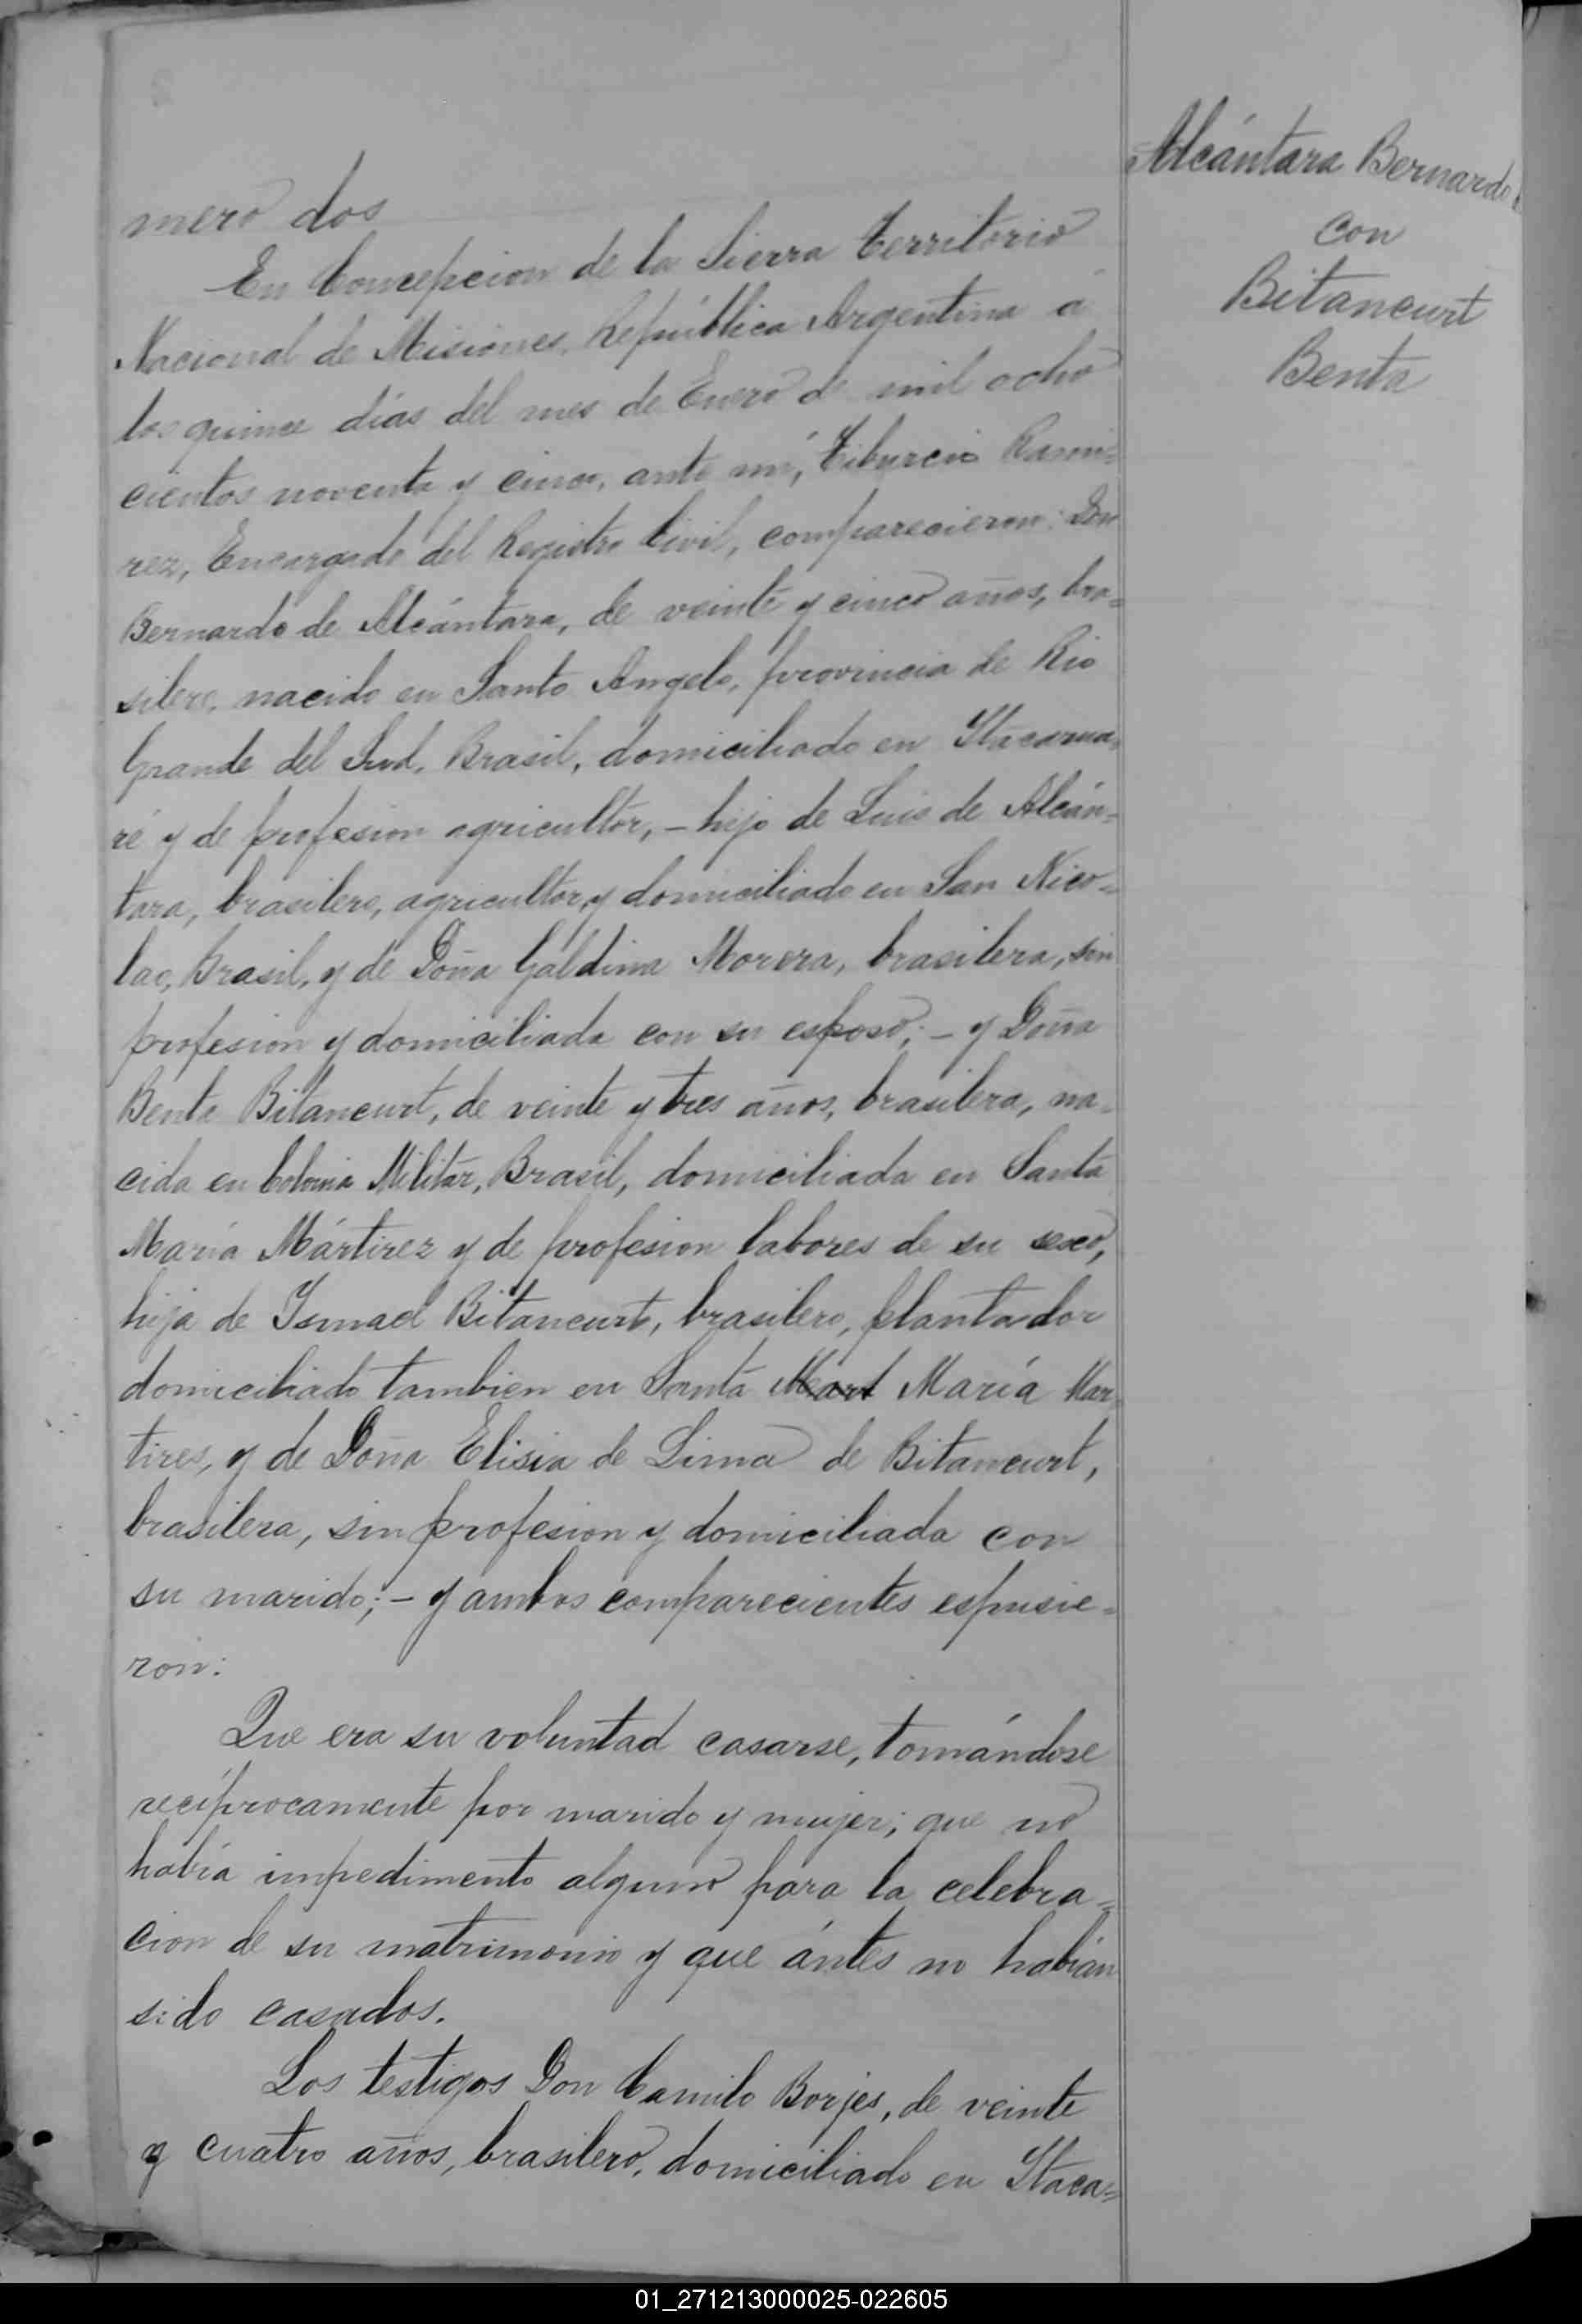 mero dos
En Concepcion de la Sierra Territorio
Nacional de Misiones, República Argentina á
los quince días del mes de Enero de mil ocho
cientos noventa y cinco, ante mí, Tiburcio Rami=
rez, Encargado del Registro Civil, comparecieron: Don
Bernardo de Alcántara, de veinte y cinco años, bra=
silero, nacido en Santo Angelo, provincia de Rio
Grande del Sud, Brasil, domiciliado en Itacarua=
ré y de profesion agricultor, – hijo de Luis de Alcán=
tara, brasilero, agricultor y domiciliado en San Nico=
las, Brasil, y de Doña Galdina Morera, brasilera, sin
profesion y domiciliada con su esposo; – y Doña
Benta Bitancurt, de veinte y tres años, brasilera, na=
cida en Colonia Militar, Brasil, domiciliada en Santa
María Mártirez y de profesion labores de su sexo,
hija de Ismael Bitancurt, brasilero, plantador
domiciliado tambien en Santa Mart María Mar=
tires, y de Doña Elisia de Lima de Bitancurt,
brasilera, sin profesion y domiciliada con
su marido; – y ambos comparecientes espusie=
ron:
Que era su voluntad casarse, tomándose
recíprocamente por marido y mujer; que no
había impedimento alguno para la celebra=
cion de su matrimonio y que ántes no habían
sido casados.
Los testigos Don Camilo Borjes, de veinte
y cuatro años, brasilero, domiciliado en Itaca=
Alcántara Bernardo
con
Bitancurt
Benta
01_271213000025-022605